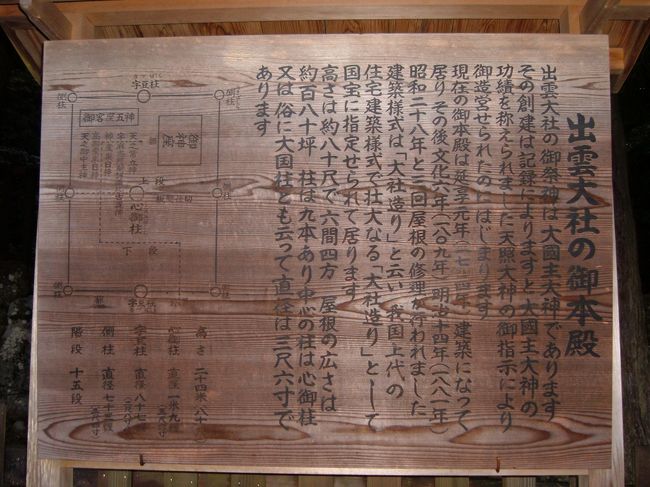 出雲大社の御本殿
出雲大社の御祭神は大國主大神であります
その創建は記録によりますと大國主大神の
功績を称えられました天照大神の御指示により
御造営せられたのにはじまります
現在の御本殿は延享元年(一七四四年)建築になって
居りその後文化六年(一八〇九年)明治十四年(一八八一年)
昭和二十八年と三回屋根の修理が行われました
建築様式は「大社造り」と云い我国上代の
住宅建築様式で壮大なる「大社造り」として
国宝に指定せられて居ります
高さは約八十尺で六間四方 屋根の広さは
約百八十坪 柱は九本あり中心の柱は心御柱
又は俗に大国柱とも云って直径は三尺六寸で
あります
側柱
宇豆柱
側柱
御客座五神
御神座
天之常立神
神産巣日神
天之御中主神
上
段
側柱
心御柱
側柱
下
段
側柱
宇豆柱
側柱
高さ 二十四米(八十尺)
心御柱 直径 一米九糎
宇豆柱 直径 八十七糎
側柱 直径 七十二糎
階段 十五段